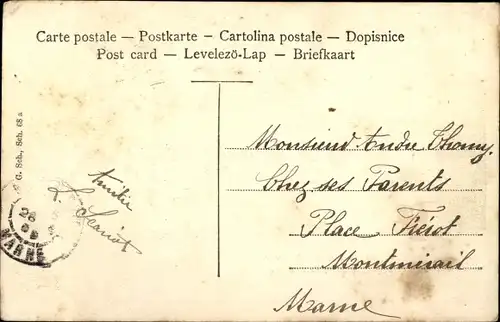 Carte postale — Postkarte — Cartolina postale — Dopisnice
Post card — Levelezö-Lap — Briefkaart
G. Sch., Sch. 68 a
Amitié
Monsieur Andre Thomy,
Chez ses Parents
Place Fiérot
Montmirail
Marne
26
MARNE